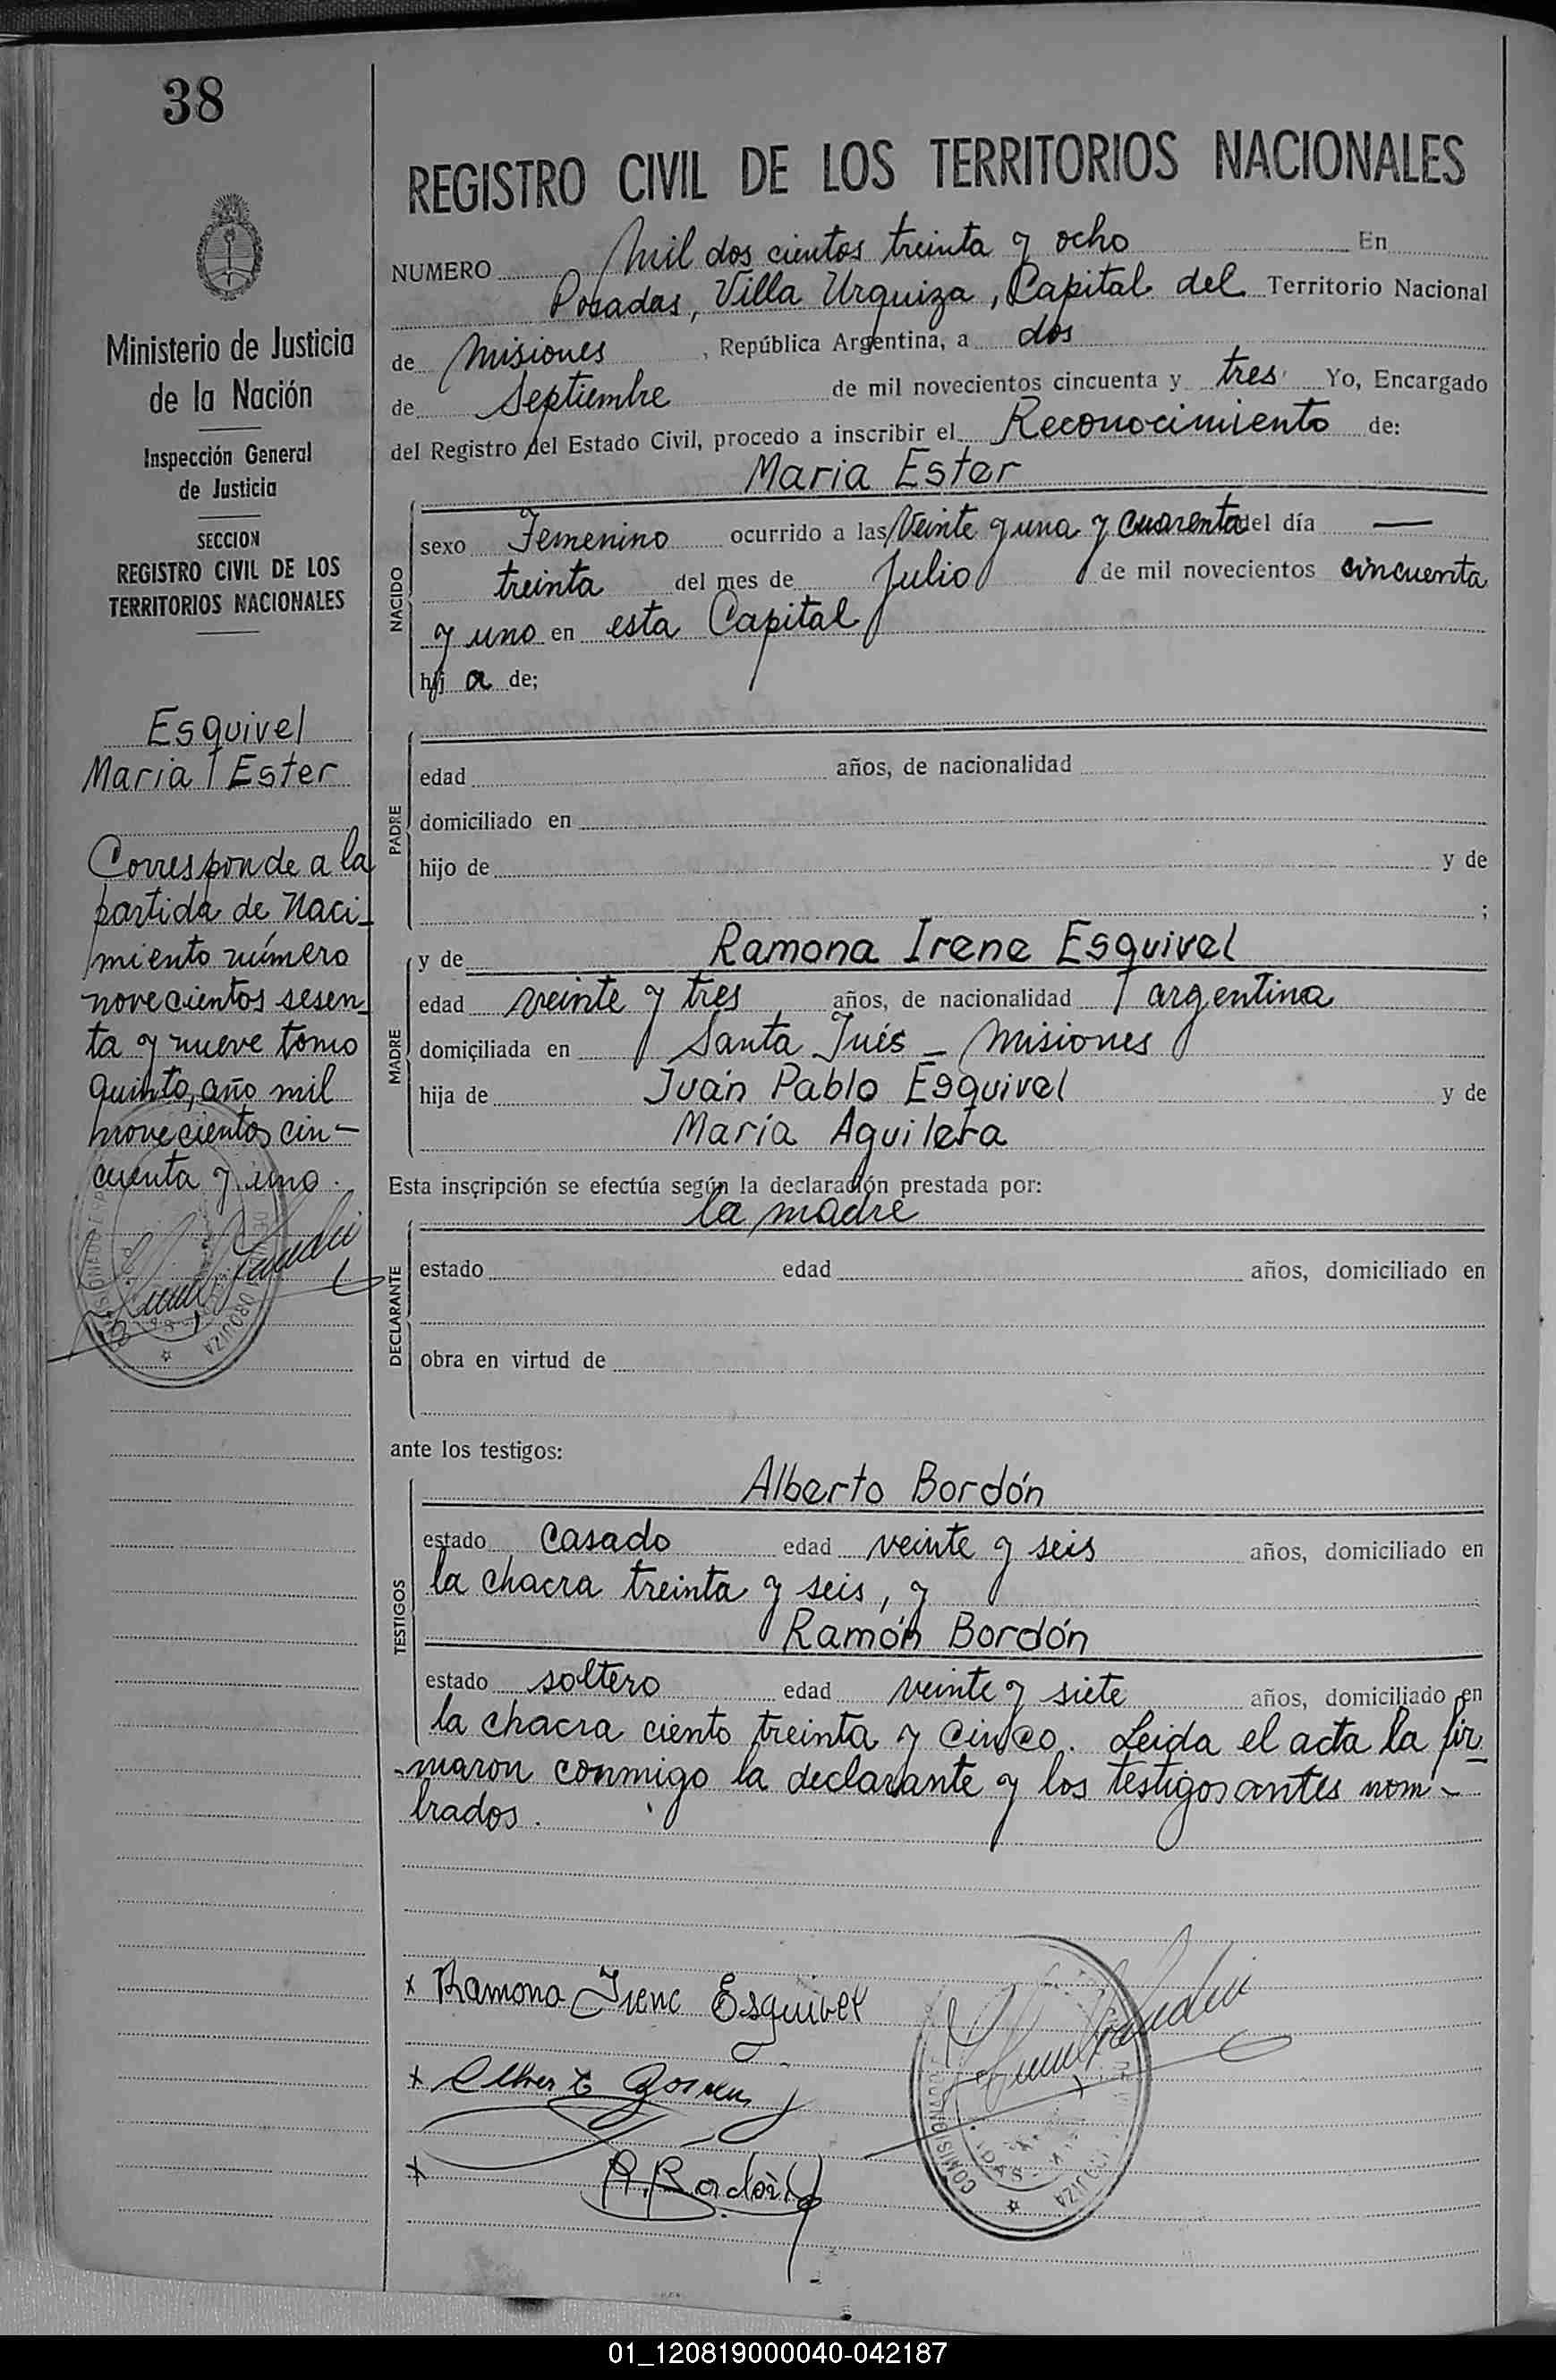 38
Ministerio de Justicia
de la Nación
Inspección General
de Justicia
SECCION
REGISTRO CIVIL DE LOS
TERRITORIOS NACIONALES
Esquivel
Maria Ester
Corresponde a la
partida de Naci-
miento número
novecientos sesen-
ta y nueve tomo
quinto, año mil
novecientos cin-
cuenta y uno.
REGISTRO CIVIL DE LOS TERRITORIOS NACIONALES
NUMERO Mil dos cientos treinta y ocho En
Posadas, Villa Urquiza, Capital del Territorio Nacional
de Misiones, República Argentina, a dos
de Septiembre de mil novecientos cincuenta y tres Yo, Encargado
del Registro del Estado Civil, procedo a inscribir el Reconocimiento de:
Maria Ester
NACIDO
sexo Femenino ocurrido a las Veinte y una y cuarenta del día —
treinta del mes de Julio de mil novecientos cincuenta
y uno en esta Capital
hij a de;
PADRE
edad años, de nacionalidad
domiciliado en
hijo de y de
;
MADRE
y de Ramona Irene Esquivel
edad veinte y tres años, de nacionalidad argentina
domiciliada en Santa Inés - Misiones
hija de Juán Pablo Esquivel y de
María Aguilera
Esta inscripción se efectúa según la declaración prestada por:
la madre
DECLARANTE
estado edad años, domiciliado en
obra en virtud de
ante los testigos:
Alberto Bordón
TESTIGOS
estado casado edad veinte y seis años, domiciliado en
la chacra treinta y seis, y
Ramón Bordón
estado soltero edad veinte y siete años, domiciliado en
la chacra ciento treinta y cinco. Leida el acta la fir-
-maron conmigo la declarante y los testigos antes nom-
brados.
x Ramona Irene Esquivel
x
x R. Bordón
01_120819000040-042187